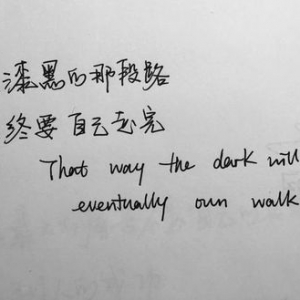 漆黑的那段路
终要自己走完
That way the dark will
eventually own walk